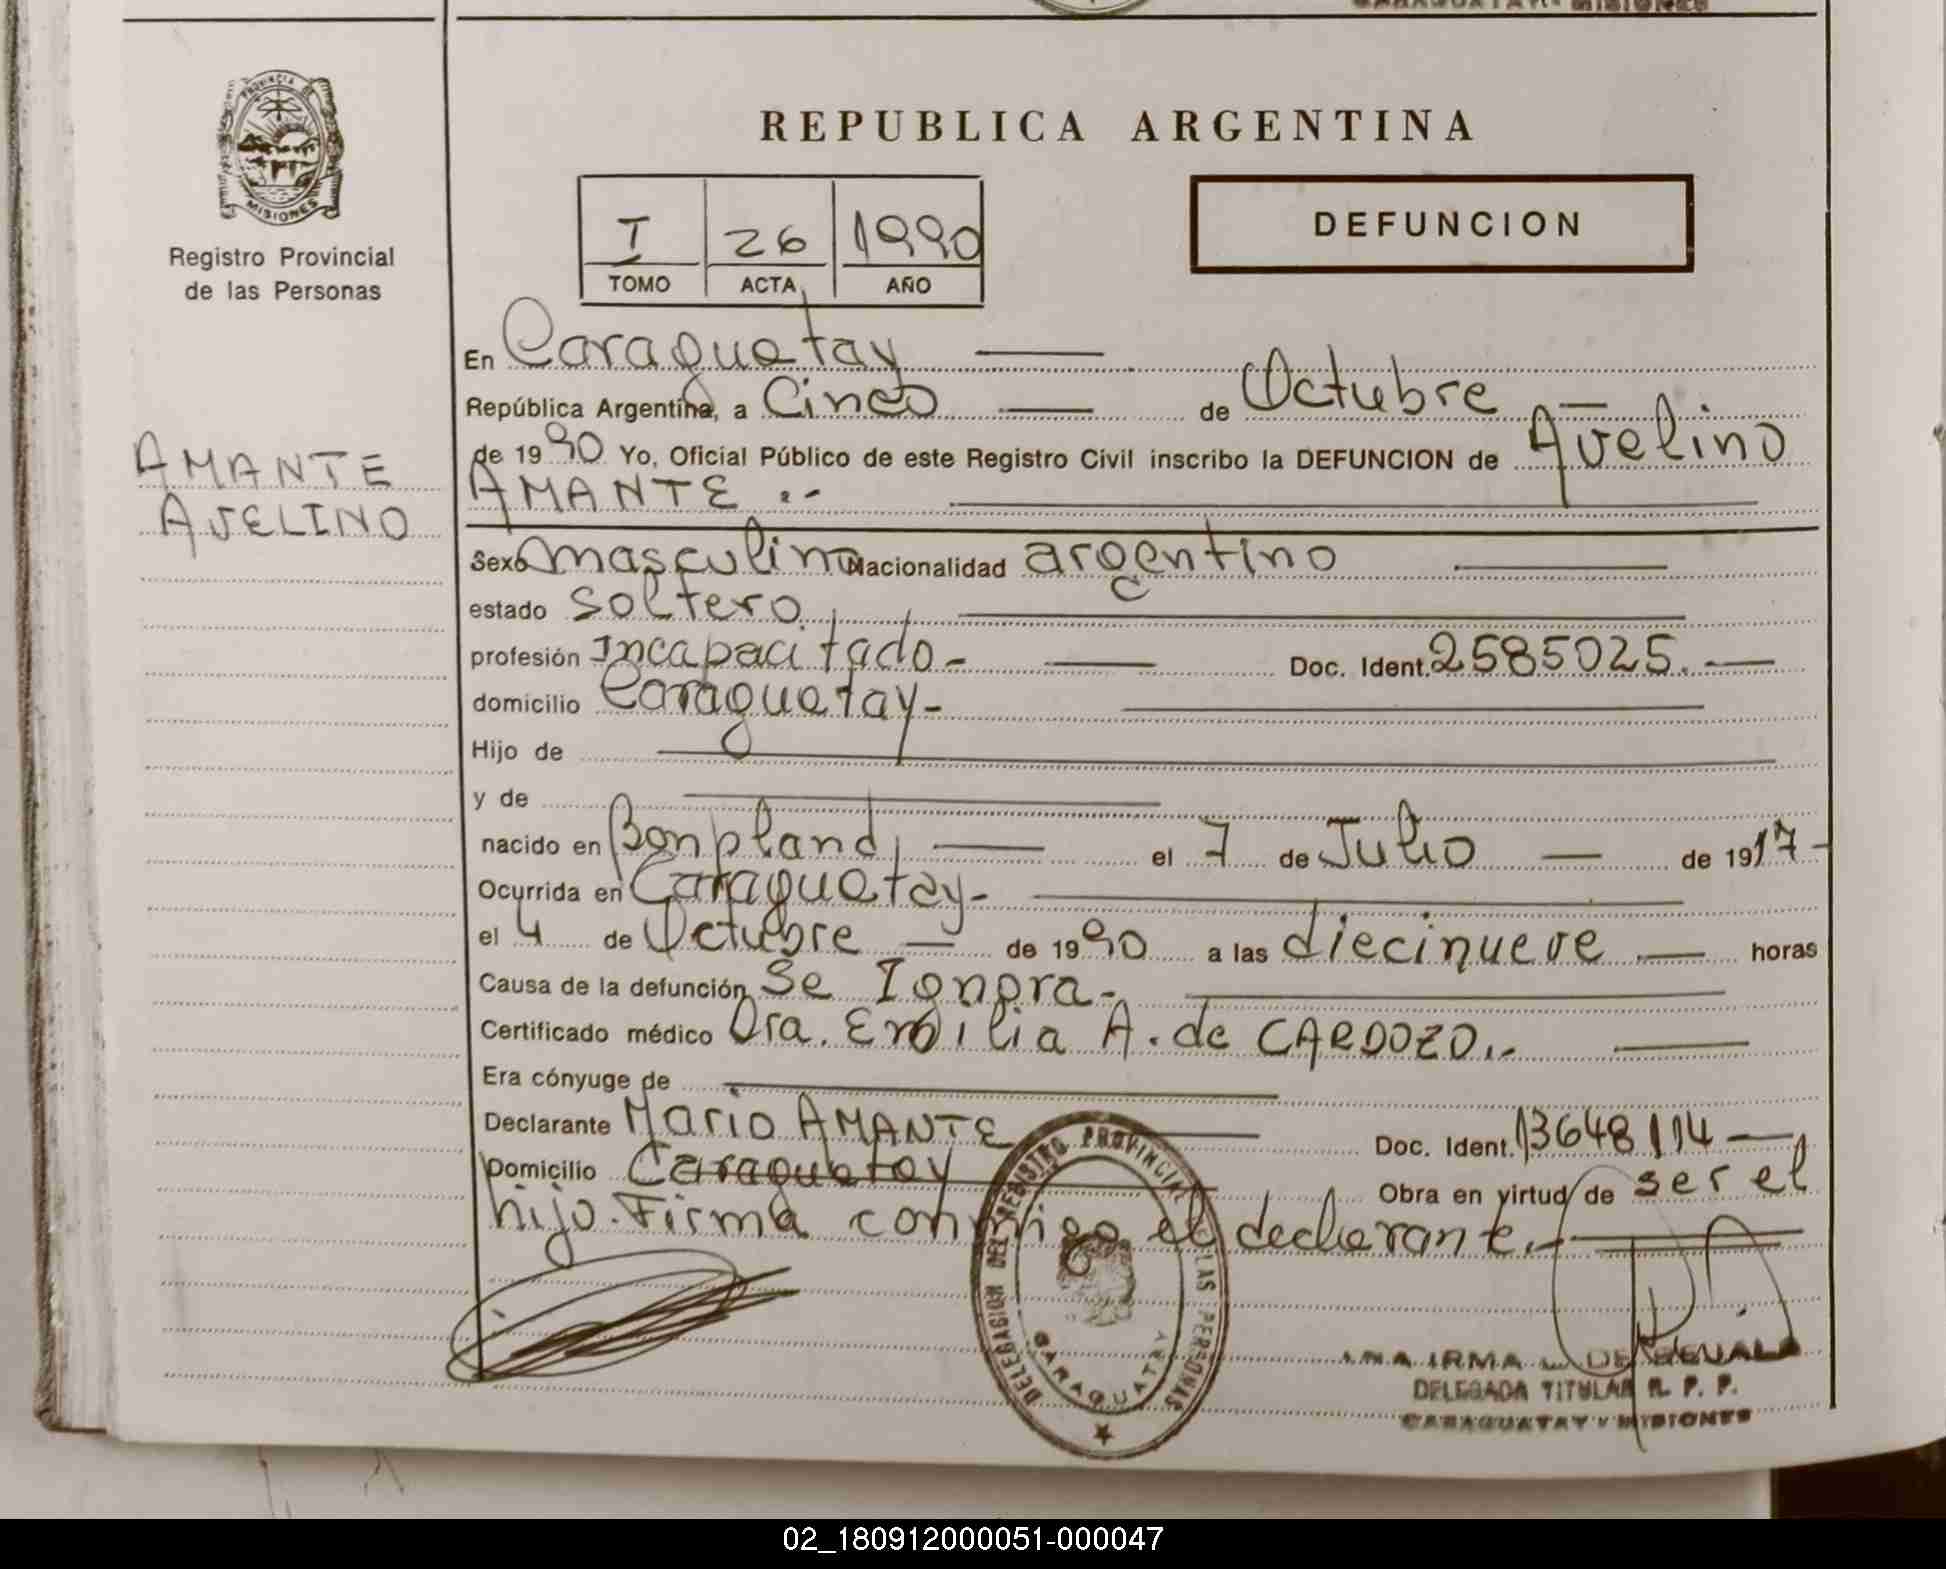 CARAGUATAY - MISIONES
PROVINCIA DE
MISIONES
Registro Provincial
de las Personas
AMANTE
AVELINO
REPUBLICA ARGENTINA
I 26 1990
TOMO ACTA AÑO
DEFUNCION
En Caraguatay
República Argentina, a Cinco de Octubre
de 1990 Yo, Oficial Público de este Registro Civil inscribo la DEFUNCION de Avelino
AMANTE .-
Sexo masculino Nacionalidad argentino
estado soltero
profesión Incapacitado- Doc. Ident. 2585025.
domicilio Caraguatay-
Hijo de
y de
nacido en Bonpland, el 7 de Julio de 1917-
Ocurrida en Caraguatay-
el 4 de Octubre de 1990 a las diecinueve horas
Causa de la defunción Se Ignora-
Certificado médico Dra. Emilia A. de CARDOZO.-
Era cónyuge de
Declarante Mario AMANTE Doc. Ident. 13648114
Domicilio Caraguatay Obra en virtud de ser el
hijo. Firma conmigo el declarante.-
DELEGACION DEL REGISTRO PROVINCIAL LAS PERSONAS
CARAGUATAY
ANA IRMA DE
DELEGADA TITULAR R. P. P.
CARAGUATAY - MISIONES
02_180912000051-000047